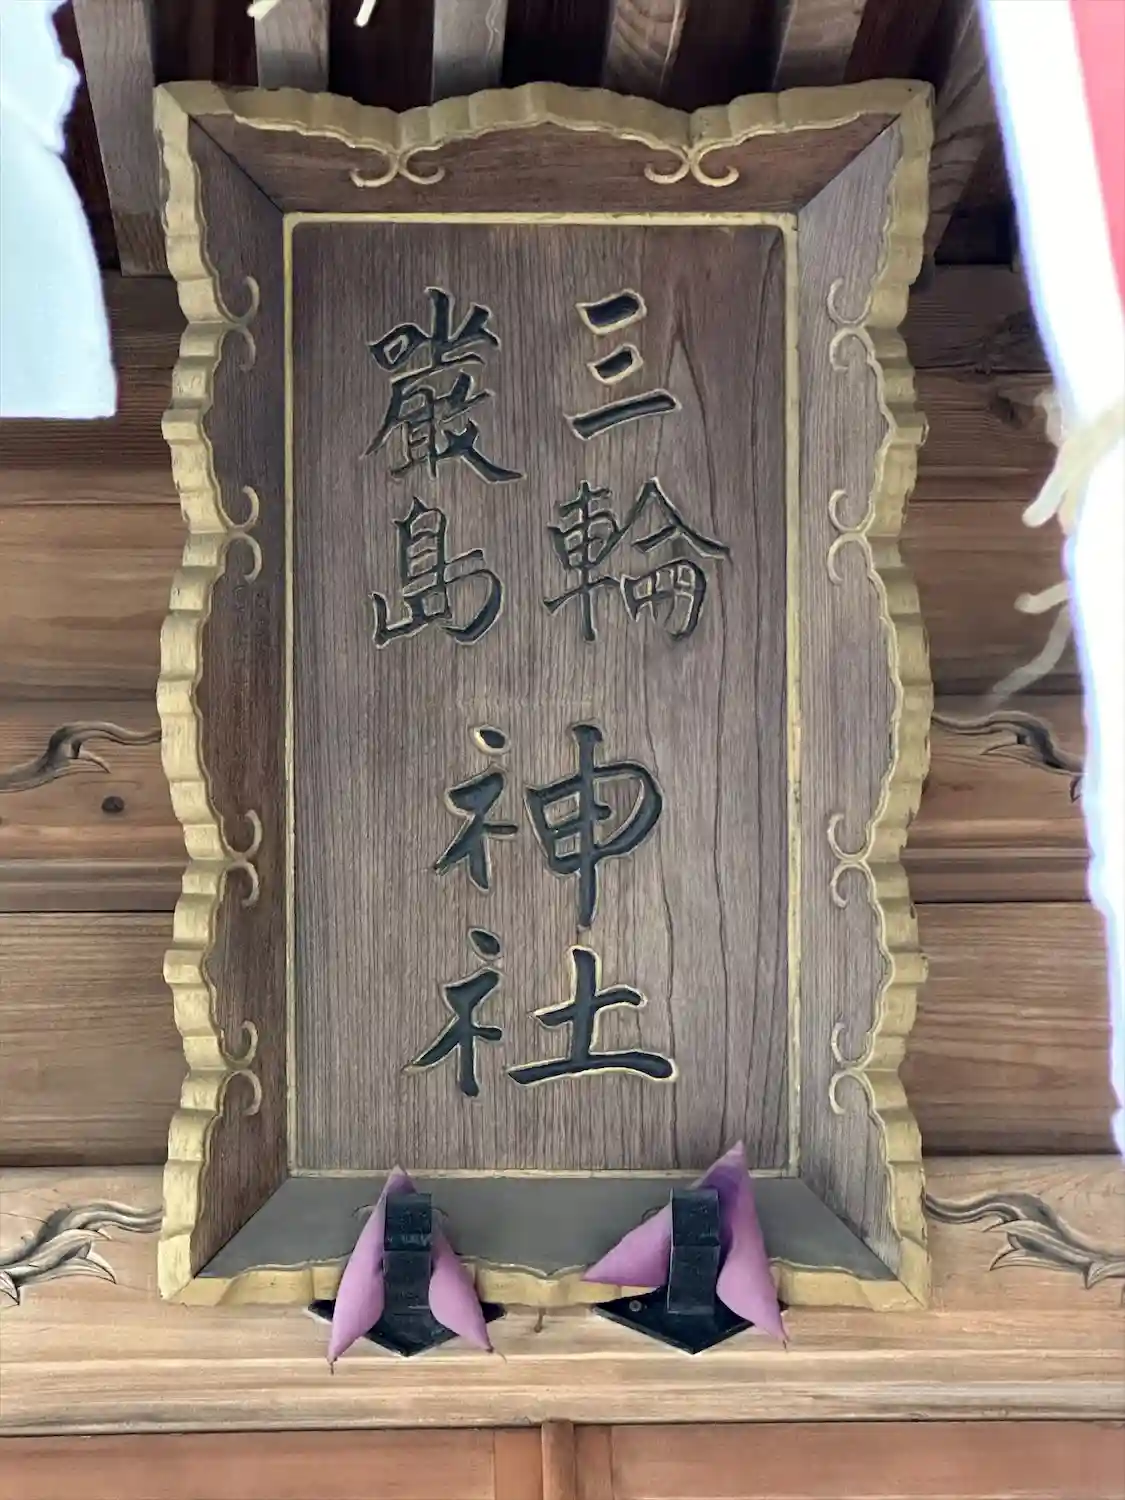 三輪
厳島
神社